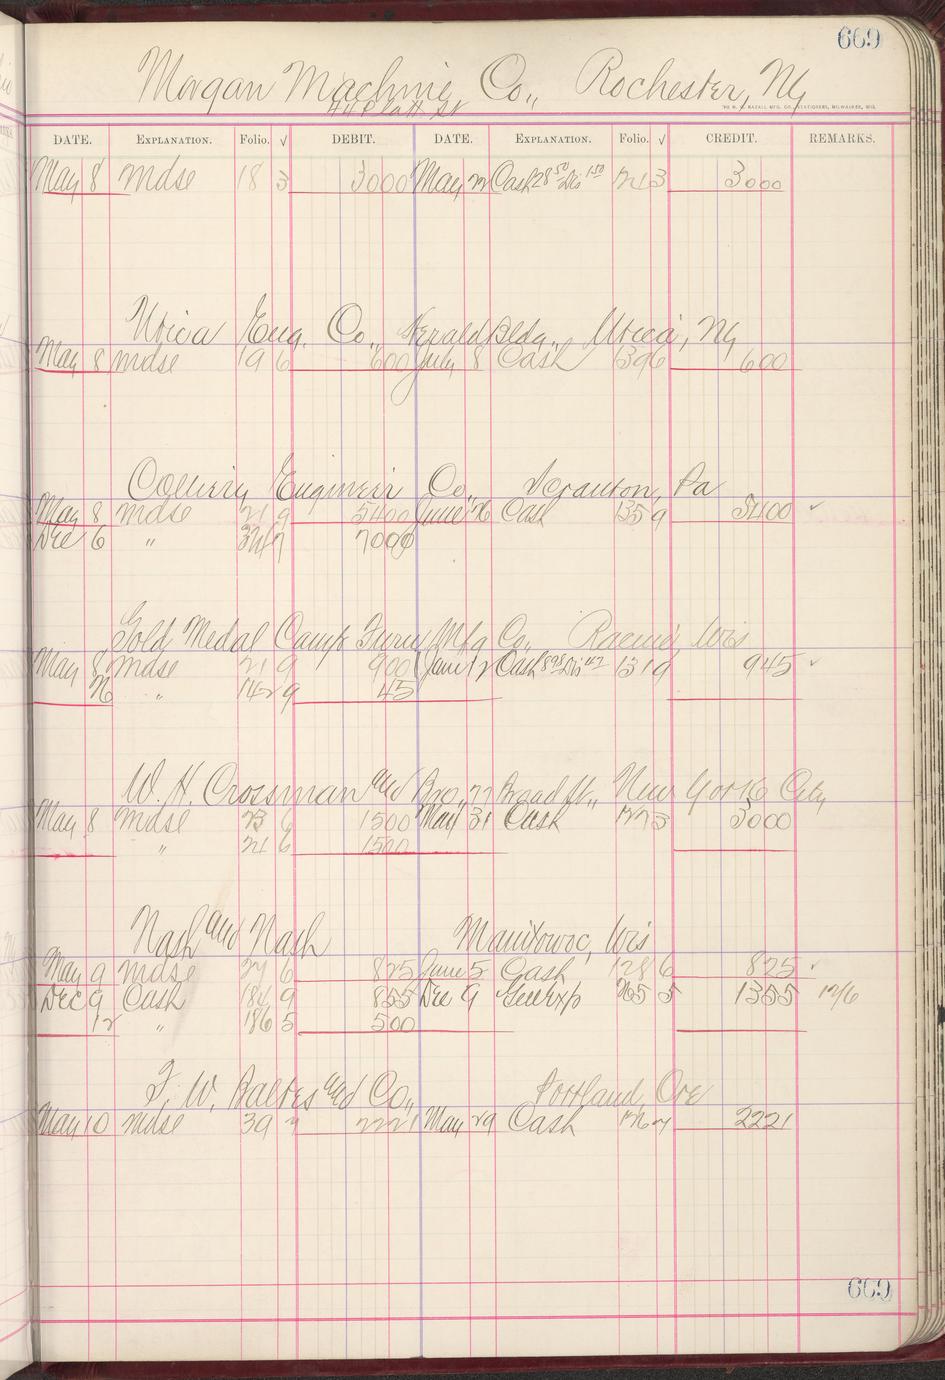 669
Morgan Machine Co., Rochester, Ny
44 Platt St
DATE. EXPLANATION. Folio. √ DEBIT. DATE. EXPLANATION. Folio. √ CREDIT. REMARKS.
May 8 mdse 18 3 3000 May 22 Cash 28 50 Dis 1 50 121 3 3000
Utica Eng. Co., Herald Bldg., Utica, Ny
May 8 mdse 19 6 600 July 8 Cash 139 6 600
Colliery Engineer Co., Scranton, Pa
May 8 mdse 21 9 5400 June 26 Cash 135 9 5400 ✓
Dec 6 " 7 7000
Gold Medal Camp Furn. Mfg Co., Racine, Wis
May 8 mdse 21 9 900 June 12 Cash 8 98 Dis 47 131 9 945 ✓
26 " 142 9 45
W. H. Crossman and Bro., 77 Broad St., New York City
May 8 mdse 23 6 1500 May 31 Cash 3 3000
" 21 6 1500
Nash and Nash Manitowoc, Wis
May 9 mdse 27 6 825 June 5 Cash 128 6 825 ✓
Dec 9 Cash 184 9 855 Dec 9 Genl Exp 265 5 1355 12/6
12 " 186 5 500
F. W. Baltes and Co., Portland, Ore
May 10 mdse 39 7 2221 May 29 Cash 126 7 2221
669